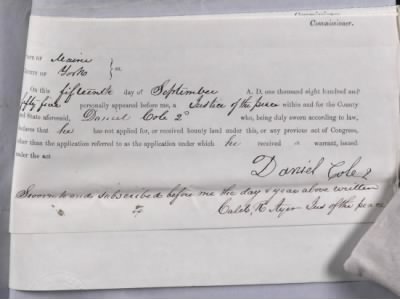 Commissioner.
Commissioner.
OF Maine
OF York } ss.
On this fifteenth day of September A. D. one thousand eight hundred and
fifty five personally appeared before me, a Justice of the peace within and for the County
and State aforesaid, Daniel Cole 2d who, being duly sworn according to law,
declares that he has not applied for, or received bounty land under this, or any previous act of Congress,
other than the application referred to as the application under which he received a warrant, issued
under the act
Daniel Cole 2
Sworn to and subscribed before me the day & year above written
Caleb R Ayer Jus of the peace